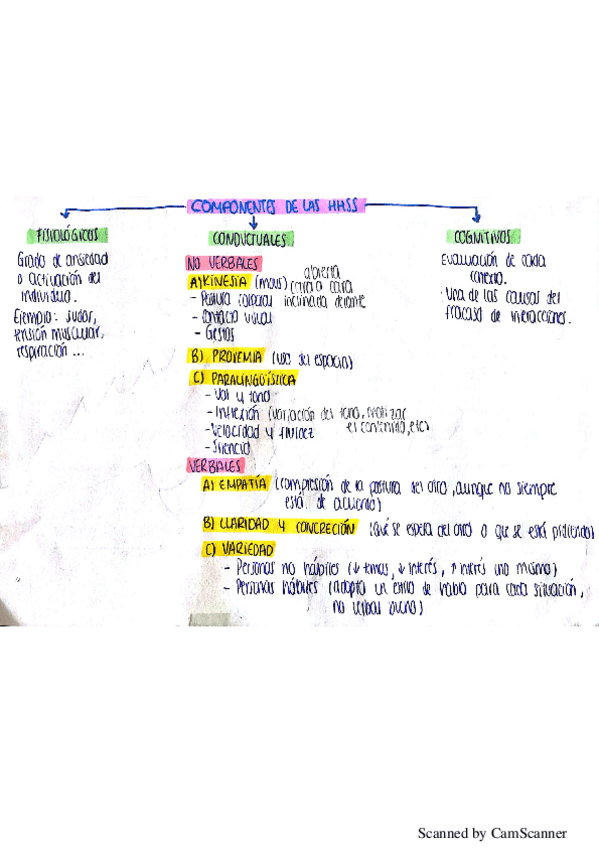 COMPONENTES DE LAS HHSS
FISIOLÓGICOS
Grado de ansiedad
o activación del
individuo.
Ejemplo: sudor,
tensión muscular,
respiración ...
CONDUCTUALES
NO VERBALES
A) KINESIA (movs) cara a cara
abierta
- Postura corporal inclinada delante
- Contacto visual
- Gestos
B) PROXEMIA (uso del espacio)
C) PARALINGÜÍSTICA
- Vol y tono
- Inflexión (variación del tono, enfatizar
el contenido, etc)
- Velocidad y fluidez
- Silencio
VERBALES
A) EMPATÍA (compresión de la postura del otro, aunque no siempre
está de acuerdo)
B) CLARIDAD Y CONCRECIÓN (Qué se espera del otro o que se está pidiendo)
C) VARIEDAD
- Personas no hábiles (↓ temas, ↓ interés, ↑ interés uno mismo)
- Personas hábiles (adopta un estilo de habla para cada situación,
no
COGNITIVOS
Evaluación de cada
contexto.
Una de las causas del
fracaso de interacciones.
Scanned by CamScanner